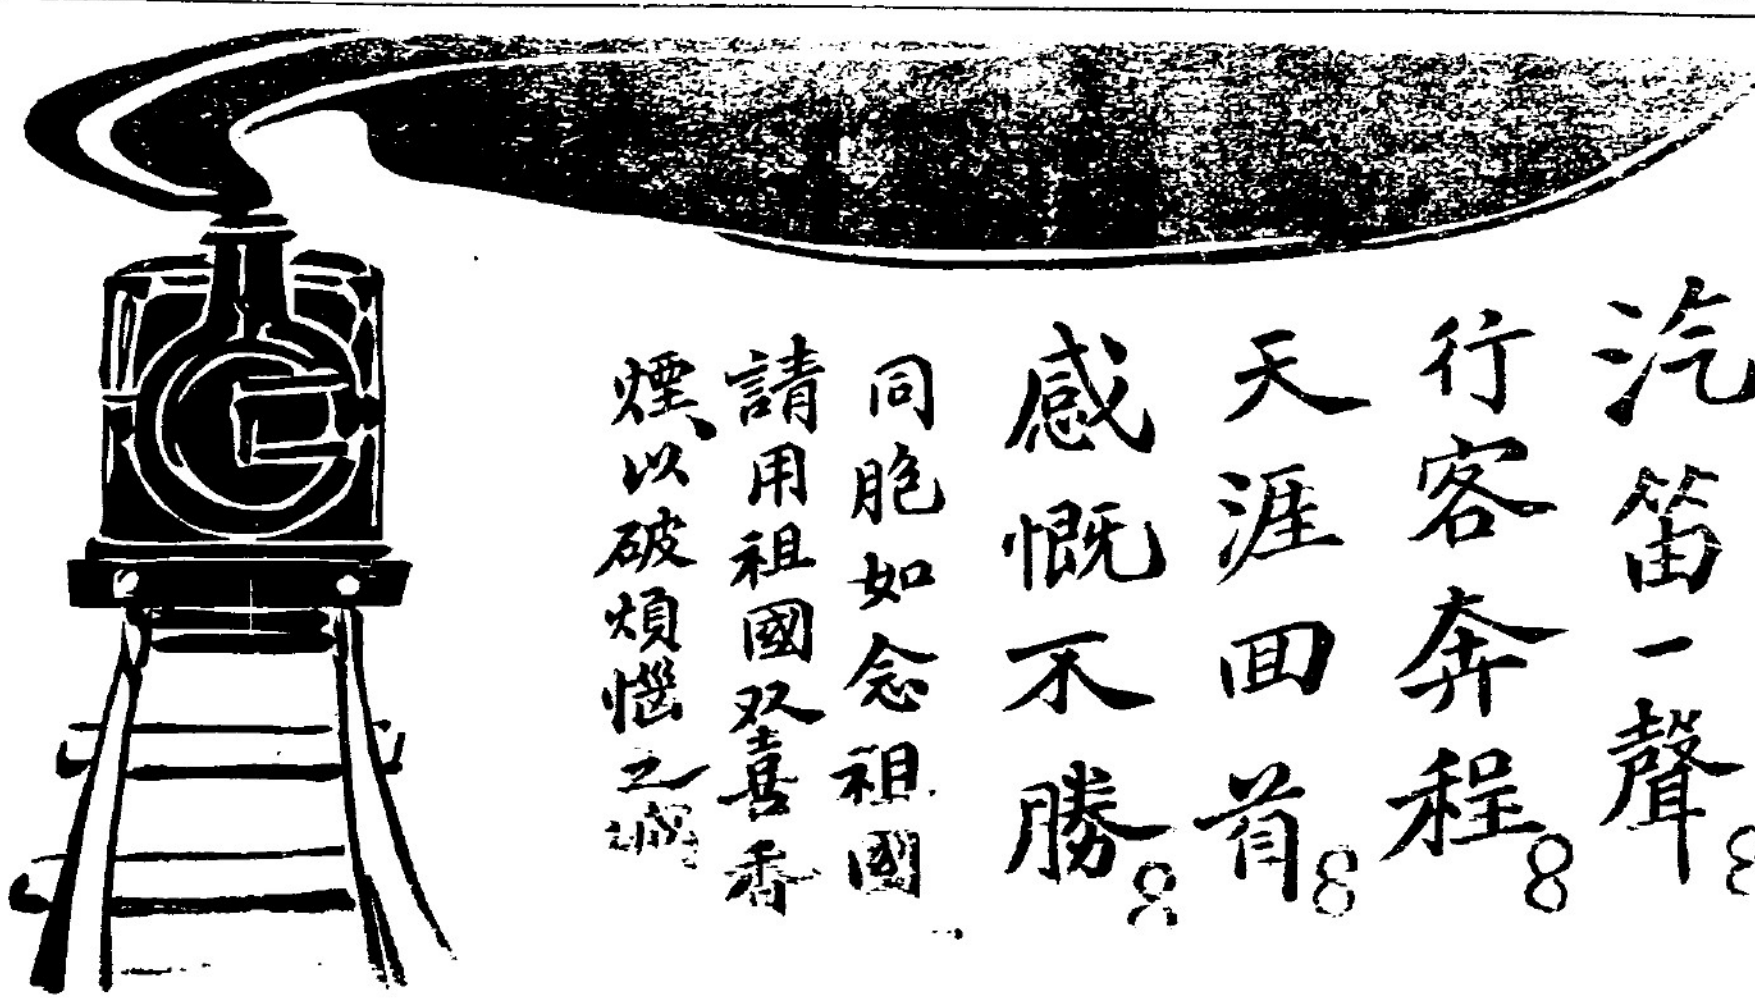 汽笛一聲
行客奔程
天涯回首
感慨不勝
同胞如念祖國
請用祖國双喜香
煙、以破煩惱之